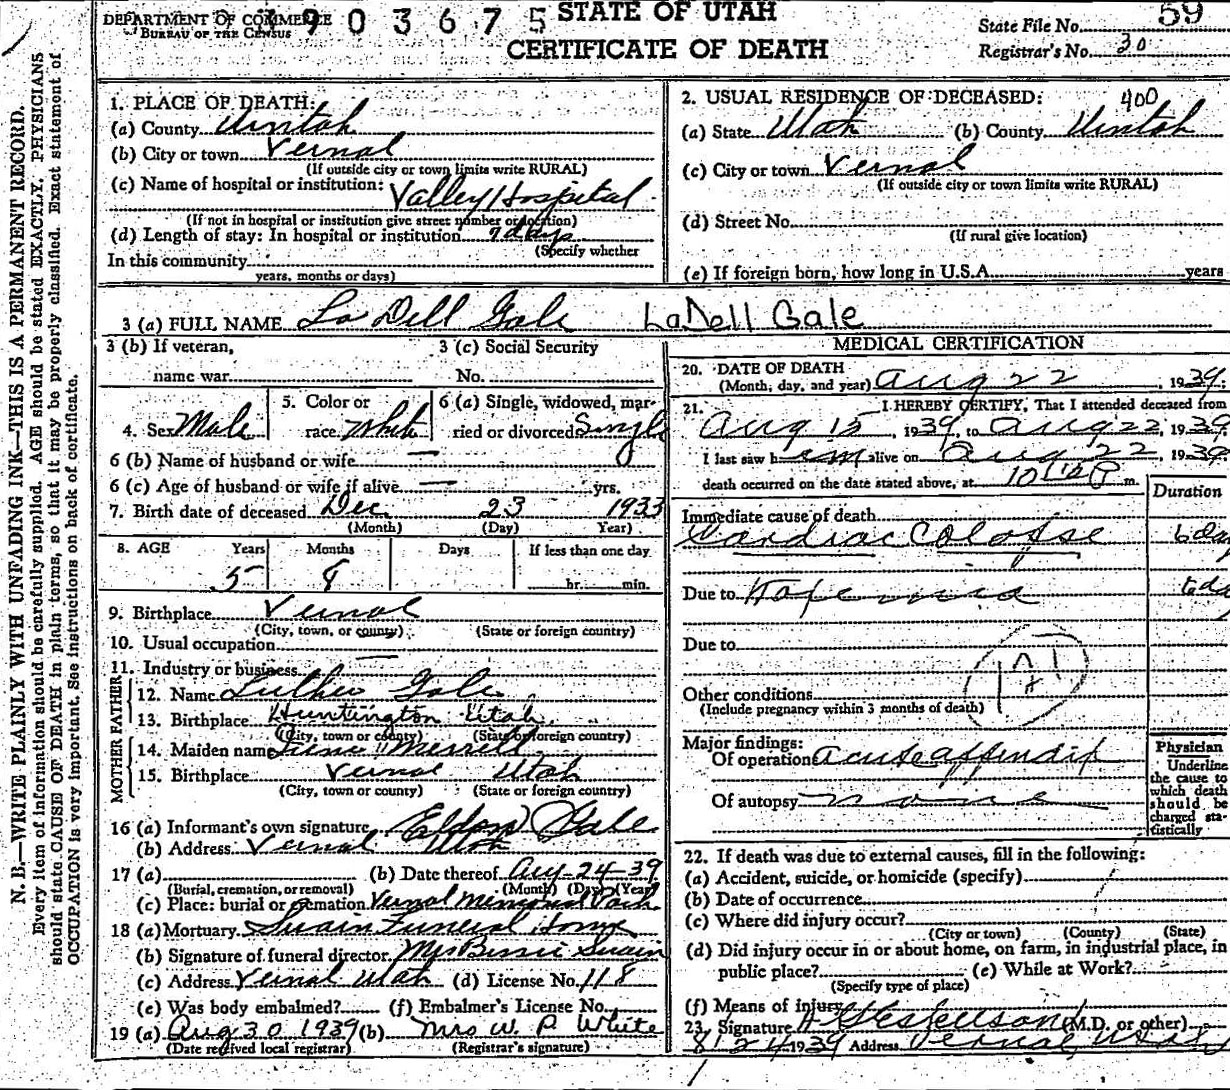 DEPARTMENT OF COMMERCE
BUREAU OF THE CENSUS
3903675
STATE OF UTAH
CERTIFICATE OF DEATH
State File No. 59
Registrar's No. 30
N. B.—WRITE PLAINLY WITH UNFADING INK—THIS IS A PERMANENT RECORD.
Every item of information should be carefully supplied. AGE should be stated EXACTLY. PHYSICIANS
should state CAUSE OF DEATH in plain terms, so that it may be properly classified. Exact statement of
OCCUPATION is very important. See instructions on back of certificate.
1. PLACE OF DEATH:
(a) County Uintah
(b) City or town Vernal
(If outside city or town limits write RURAL)
(c) Name of hospital or institution:
Valley Hospital
(If not in hospital or institution give street number or location)
(d) Length of stay: In hospital or institution 7 days
(Specify whether
In this community
years, months or days)
2. USUAL RESIDENCE OF DECEASED: 400
(a) State Utah (b) County Uintah
(c) City or town Vernal
(If outside city or town limits write RURAL)
(d) Street No.
(If rural give location)
(e) If foreign born, how long in U.S.A. years
3 (a) FULL NAME La Dell Gale LaDell Gale
3 (b) If veteran,
name war
3 (c) Social Security
No.
4. Sex Male
5. Color or
race White
6 (a) Single, widowed, mar-
ried or divorced Single
6 (b) Name of husband or wife —
6 (c) Age of husband or wife if alive — yrs.
7. Birth date of deceased Dec 23 1933
(Month) (Day) Year)
8. AGE Years Months Days If less than one day
5 8 hr. min.
9. Birthplace Vernal
(City, town, or county) (State or foreign country)
10. Usual occupation
11. Industry or business
FATHER
12. Name Luther Gale
13. Birthplace Huntington Utah
(City, town or county) (State or foreign country)
MOTHER
14. Maiden name Merrell
15. Birthplace Vernal Utah
(City, town or county) (State or foreign country)
16 (a) Informant's own signature Eldon Gale
(b) Address Vernal Utah
17 (a) (b) Date thereof Aug-24-39
(Burial, cremation, or removal) (Month) (Day) (Year)
(c) Place: burial or cremation Vernal Memorial Park
18 (a) Mortuary Swain Funeral Home
(b) Signature of funeral director Mrs Swain
(c) Address Vernal Utah (d) License No. 118
(e) Was body embalmed? (f) Embalmer's License No.
19 (a) Aug 30 1939 (b) Mrs W. P. White
(Date received local registrar) (Registrar's signature)
MEDICAL CERTIFICATION
20. DATE OF DEATH
(Month, day, and year) Aug 22, 1939
21. I HEREBY CERTIFY, That I attended deceased from
Aug 15, 1939, to Aug 22, 1939
I last saw him alive on Aug 22, 1939
death occurred on the date stated above, at 10 P m.
Duration
Immediate cause of death
Cardiac Colapse 6 da
Due to 6 da
Due to
Other conditions
(Include pregnancy within 3 months of death)
Major findings:
Of operation acute appendix
Of autopsy none
Physician
Underline
the cause to
which death
should be
charged sta-
tistically
22. If death was due to external causes, fill in the following:
(a) Accident, suicide, or homicide (specify)
(b) Date of occurrence
(c) Where did injury occur?
(City or town) (County) (State)
(d) Did injury occur in or about home, on farm, in industrial place, in
public place? (e) While at Work?
(Specify type of place)
(f) Means of injury
23. Signature (M.D. or other)
8/24 1939 Address Vernal, Utah